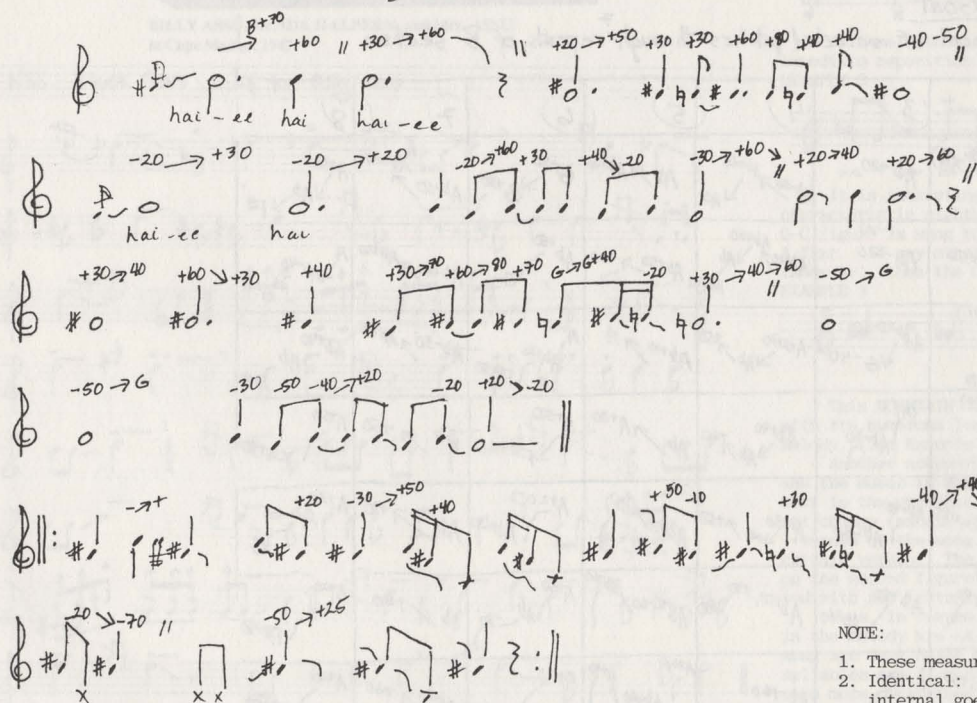 B+70
+60 // +30 → +60 // +20 → +50 +30 +30 +60 +80 +40 +40 -40 -50 //
hai - ee hai hai - ee
-20 → +30 -20 → +20 -20 → +60 +30 +40 ↘ -20 -30 → +60 ↘ // +20 → 40 +20 → 60 //
hai - ee hai
+30 → 40 +60 ↘ +30 +40 +30 → 70 +60 → 80 +70 G → G+40 -20 +30 → 40 → 60 // -50 → G
-50 → G -30 -50 -40 → +20 -20 +20 ↘ -20
- → + +20 -30 → +50 +40 +50 -10 +30 -40 → +40
20 ↘ -70 // -50 → +25
x x x
NOTE:
1. These measur
2. Identical:
internal goo